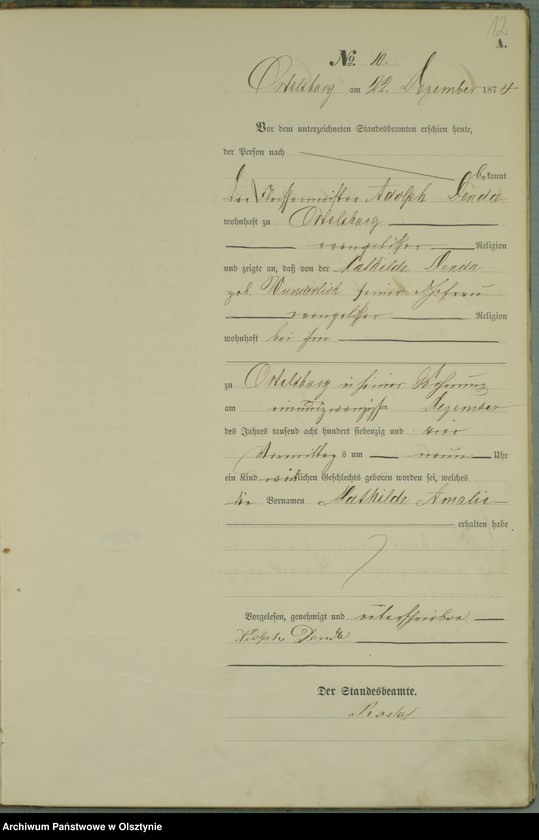 12
A.
No. 10.
Ortelsburg am 22. Dezember 1874
Vor dem unterzeichneten Standesbeamten erschien heute,
der Person nach
bekannt
der Fleischermeister Adolph Denda
wohnhaft zu Ortelsburg
evangelischer Religion
und zeigte an, daß von der Mathilde Denda
geb. Wunderlich seiner Ehefrau
evangelischer Religion
wohnhaft bei ihm
zu Ortelsburg in seiner Wohnung
am einundzwanzigsten Dezember
des Jahres tausend acht hundert siebenzig und vier
Vormittags um neun Uhr
ein Kind weiblichen Geschlechts geboren worden sei, welches
die Vornamen Mathilde Amalie
erhalten habe
Vorgelesen, genehmigt und unterschrieben
Adolph Denda
Der Standesbeamte.
Archiwum Państwowe w Olsztynie